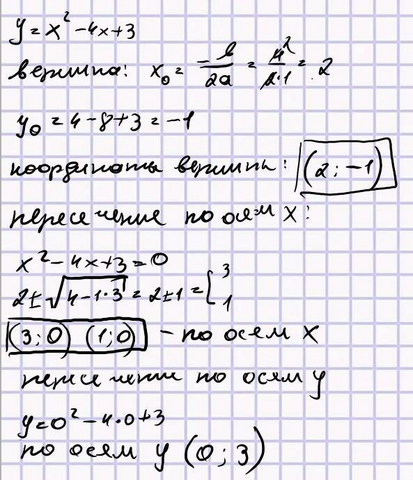 y = x² - 4x + 3
вершина: x₀ = -b/2a = 4/2·1 = 2
y₀ = 4 - 8 + 3 = -1
координаты вершины: (2; -1)
пересечение по осям x:
x² - 4x + 3 = 0
2 ± √4 - 1·3 = 2 ± 1 = [3 1
(3; 0) (1; 0) - по осям x
пересечение по осям y
y = 0² - 4·0 + 3
по осям y (0; 3)